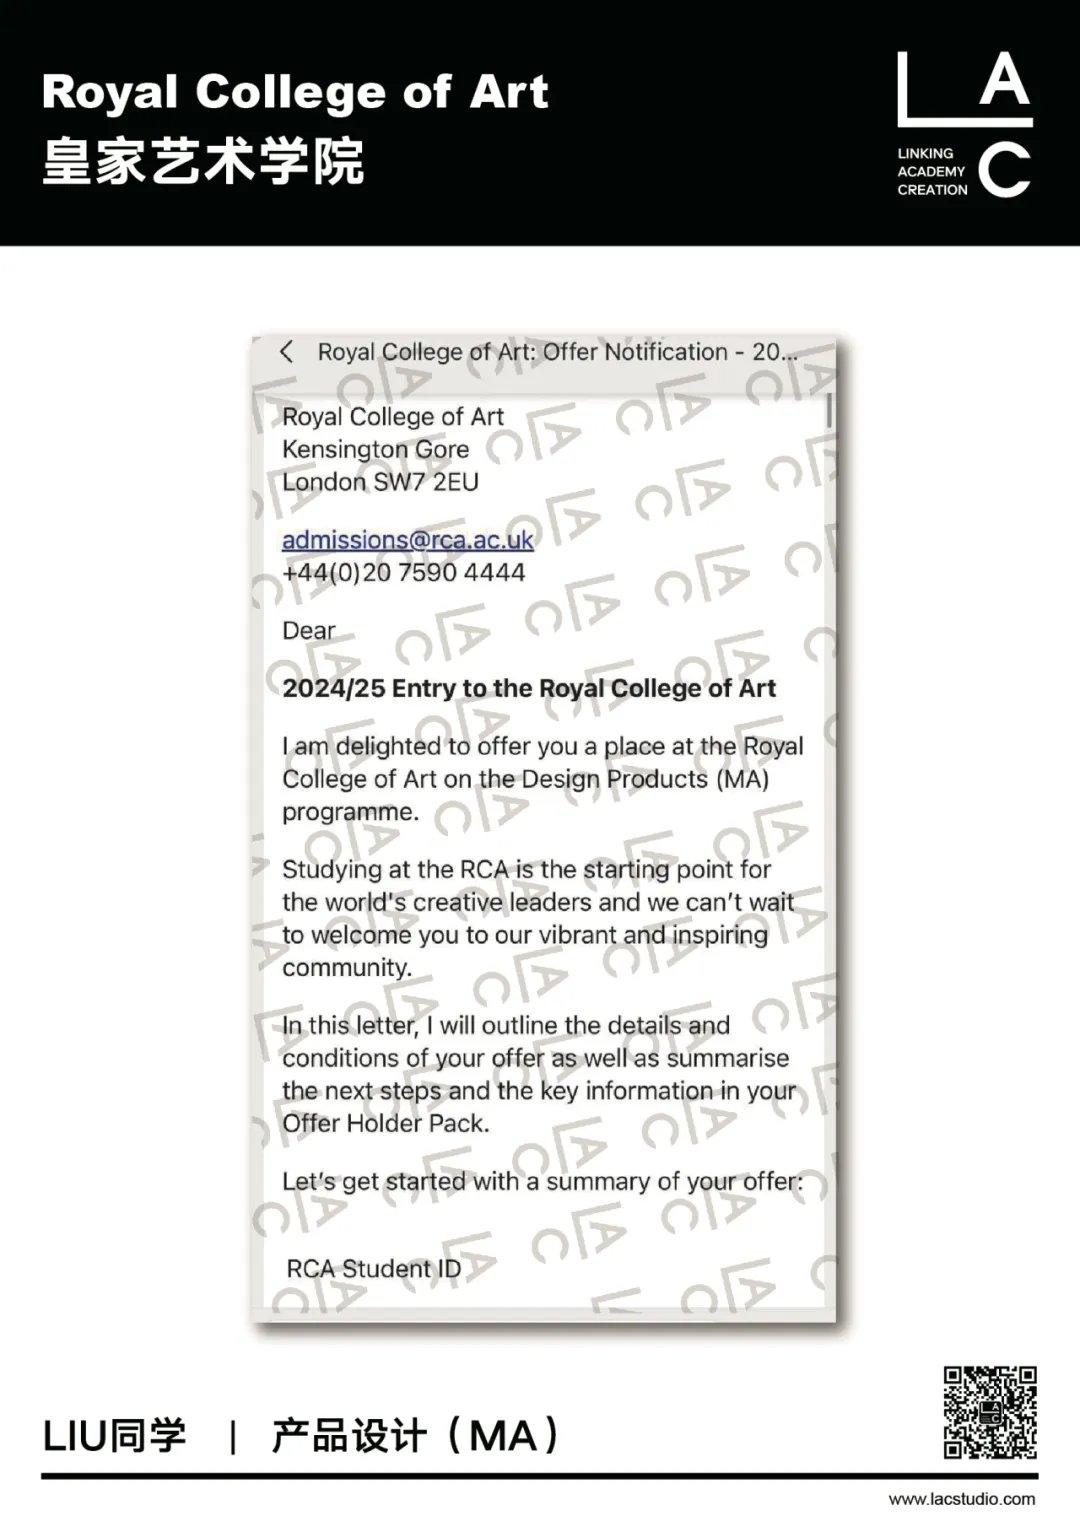 Royal College of Art
皇家艺术学院
L A C
LINKING
ACADEMY
CREATION
Royal College of Art: Offer Notification - 20...
Royal College of Art
Kensington Gore
London SW7 2EU
admissions@rca.ac.uk
+44(0)20 7590 4444
Dear
2024/25 Entry to the Royal College of Art
I am delighted to offer you a place at the Royal
College of Art on the Design Products (MA)
programme.
Studying at the RCA is the starting point for
the world's creative leaders and we can't wait
to welcome you to our vibrant and inspiring
community.
In this letter, I will outline the details and
conditions of your offer as well as summarise
the next steps and the key information in your
Offer Holder Pack.
Let's get started with a summary of your offer:
RCA Student ID
LIU同学 | 产品设计（MA）
www.lacstudio.com